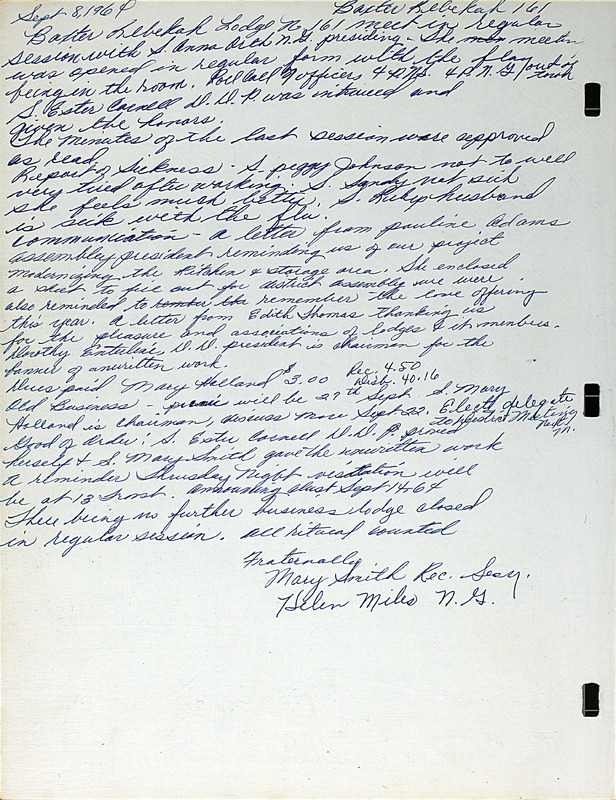 Sept 8, 1964 Baxter Rebekah 161
Baxter Rebekah Lodge No 161 meet in regular
session with S. Anna Orth N.G. presiding - The meeting
was opened in regular form with the flag
being in the room. Roll call of officers 4 P.N.G. 4 P.N.G. out of town
S. Ester Cornell D.D.P. was introduced and
given the honors.
The Minutes of the last session ware approved
as read
Report of Sickness - S. Peggy Johnson not to well
very tired after working. S. Sandy not sick
she feels much better, S. Ruby husband
is sick with the flu.
Communication - a letter from Pauline Adams
assembly president reminding us of our project
Modernizing the Kitchen & storage area. She enclosed
a sheet to fill out for district assembly we were
also reminded to remember the love offering
this year. A letter from Edith Thomas thanking us
for the pleasure and associations of lodges & it members.
Dorothy D.D. president is chairman for the
banner of unwritten work.
Dues paid Mary Holland $3.00 Rec. 4.50
Disb. 40.16
Old Business - picnic will be 27th Sept. S. Mary
Holland is chairman, discuss more Sept 22. Elect delegate
to District Meeting
Good of Order: S. Ester Cornell D.D.P. joined
herself & S. Mary Smith gave the unwritten work
a reminder Thursday Night visitation will
be at 13 Frost. Sept 14-64
There being no further business lodge closed
in regular session. all ritual counted
Fraternally
Mary Smith Rec. Secy.
Helen Miles N.G.